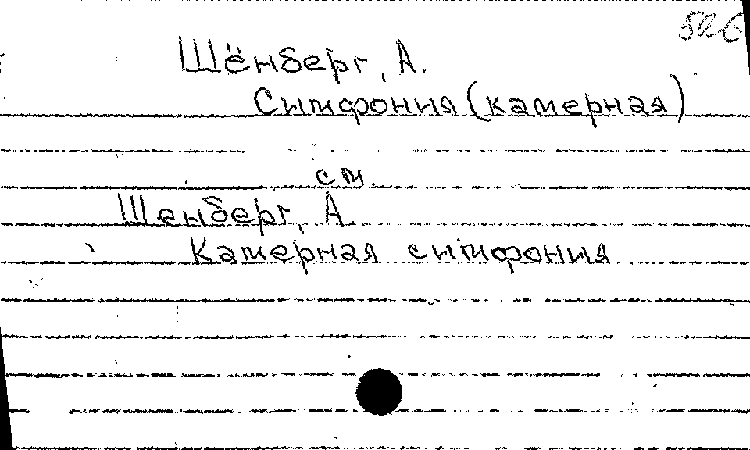 Шёнберг, А.
Симфония (камерная)
см
Шенберг, А.
Камерная симфония